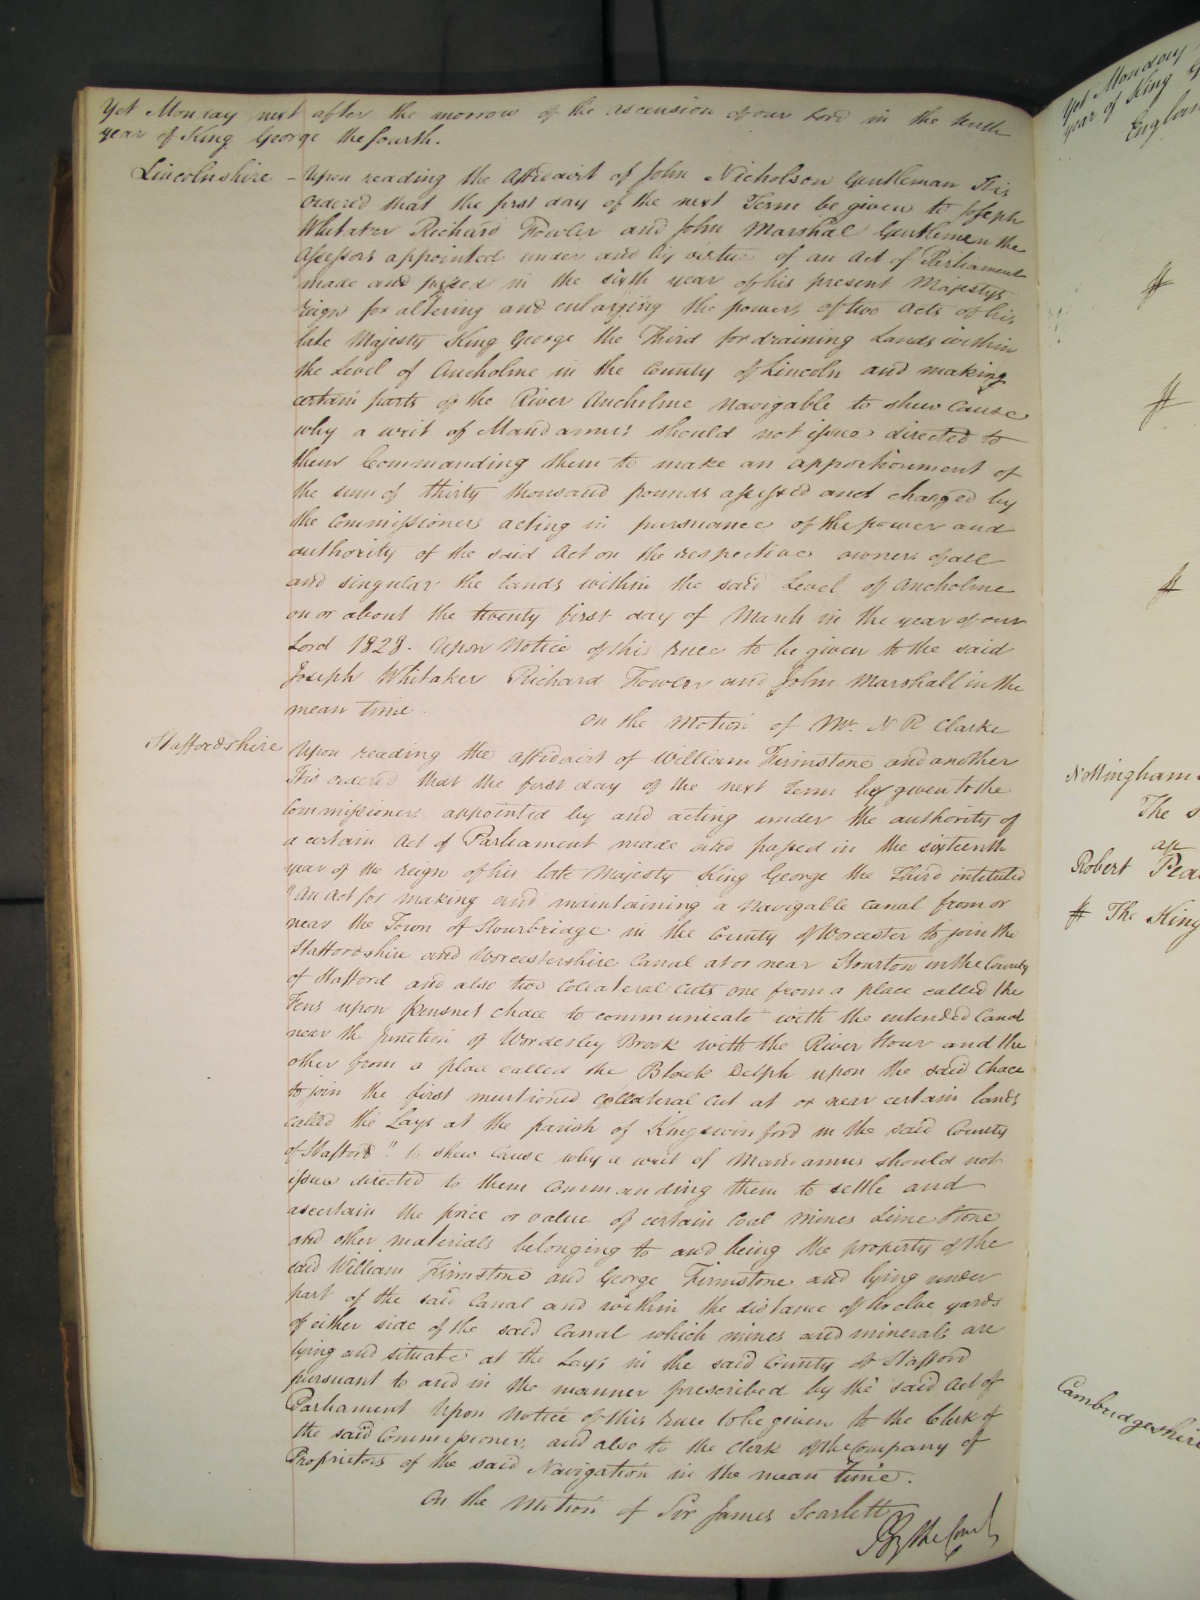 Yet Monday next after the morrow of the ascension of our Lord in the tenth
year of King George the fourth.
Lincolnshire - Upon reading the Affidavit of John Nicholson Gentleman It is
ordered that the first day of the next Term be given to Joseph
Whitaker Richard Fowler and John Marshal Gentlemen the
Assessors appointed under and by virtue of an Act of Parliament
made and passed in the sixth year of his present Majestys
reign for altering and enlarging the powers of two Acts of his
late Majesty King George the Third for draining Lands within
the Level of Ancholme in the County of Lincoln and making
certain parts of the River Ancholme navigable to shew Cause
why a writ of Mandamus should not issue directed to
them Commanding them to make an apportionment of
the sum of thirty thousand pounds assessed and charged by
the Commissioners acting in pursuance of the power and
authority of the said Act on the respective owners of all
and singular the lands within the said Level of Ancholme
on or about the twenty first day of March in the year of our
Lord 1828. Upon Notice of this rule to be given to the said
Joseph Whitaker Richard Fowler and John Marshall in the
mean time.
On the Motion of Mr. N R Clarke
Staffordshire Upon reading the affidavit of William Firmstone and another
It is ordered that the first day of the next Term be given to the
Commissioners appointed by and acting under the authority of
a certain Act of Parliament made and passed in the sixteenth
year of the reign of his late Majesty King George the Third intituled
"An Act for making and maintaining a navigable canal from or
near the Town of Stourbridge in the County of Worcester to join the
Staffordshire and Worcestershire Canal at or near Stourton in the County
of Stafford and also two Collateral Cuts one from a place called the
Fens upon Pensnet chace to communicate with the intended Canal
near the Junction of Wordesley Brook with the River Stour and the
other from a place called the Black Delph upon the said Chace
to join the first mentioned Collateral Cut at or near certain lands
called the Lays at the parish of Kingswinford in the said County
of Stafford" to shew Cause why a writ of Mandamus should not
issue directed to them Commanding them to settle and
ascertain the price or value of certain Coal Mines Lime Stone
and other materials belonging to and being the property of the
said William Firmstone and George Firmstone and lying under
part of the said Canal and within the distance of twelve yards
of either side of the said Canal which mines and minerals are
lying and situate at the Lays in the said County of Stafford
pursuant to and in the manner prescribed by the said Act of
Parliament Upon Notice of this rule to be given to the Clerk of
the said Commissioners and also to the Clerk of the Company of
Proprietors of the said Navigation in the mean time.
On the Motion of Sir James Scarlett
By the Court
Yet Monday
year of King G
Englan
#
#
#
Nottingham
The s
Robert
# The King
Cambridgeshire